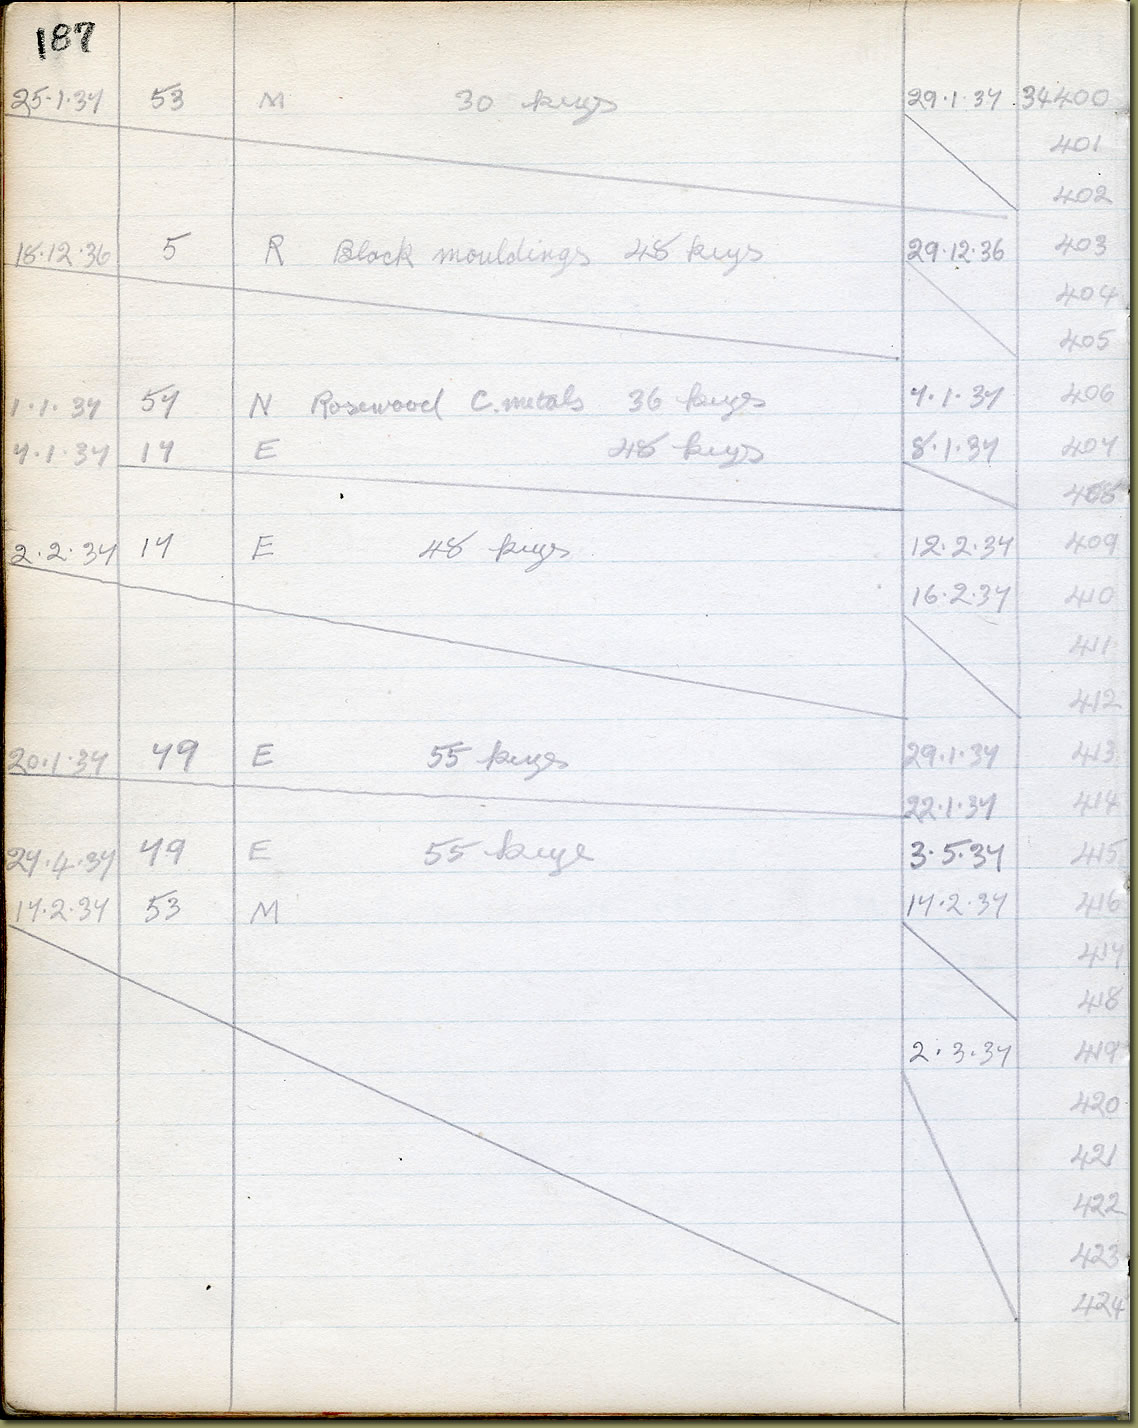 187
25·1·37 53 M 30 keys 29·1·37 34400
401
402
18·12·36 5 R Black mouldings 48 keys 29·12·36 403
404
405
1·1·37 57 N Rosewood C. metals 36 keys 7·1·37 406
7·1·37 17 E 48 keys 8·1·37 407
408
2·2·37 17 E 48 keys 12·2·37 409
16·2·37 410
411
412
20·1·37 79 E 55 keys 29·1·37 413
22·1·37 414
27·4·37 79 E 55 keys 3·5·37 415
17·2·37 53 M 17·2·37 416
417
418
2·3·37 419
420
421
422
423
424